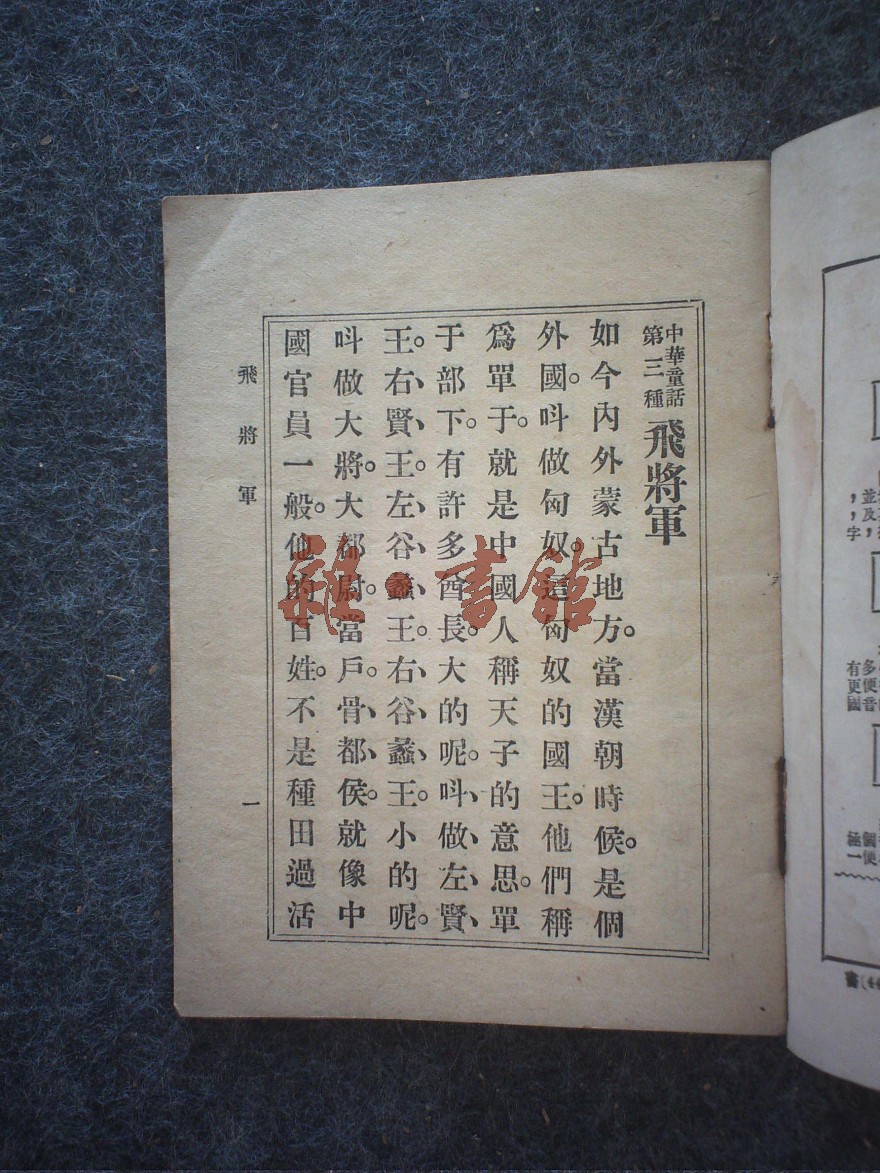 中華童話
第三種
飛將軍
如今內外蒙古地方。當漢朝時候。是個
外國。呌做匈奴。這匈奴的國王。他們稱
爲單于。就是中國人稱天子的意思。單
于部下。有許多酋長。大的呢。呌做左賢
王。右賢王。左谷蠡王。右谷蠡王。小的呢。
呌做大將。大都尉。當戶。骨都侯。就像中
國官員一般。他的百姓。不是種田過活
飛將軍
一
雜·書館